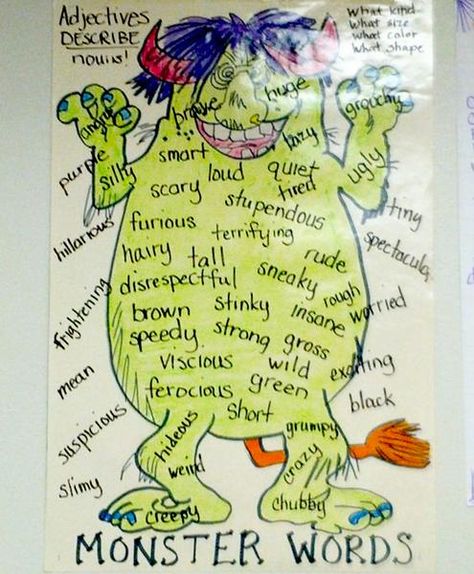 Adjectives
DESCRIBE
nouns!
What kind
What size
What color
What shape
huge
brave
grouchy
angry
lazy
purple
silly
smart
loud
quiet
ugly
scary
tired
tiny
stupendous
hilarious
furious
terrifying
spectacular
hairy
tall
rude
disrespectful
sneaky
frightening
brown
stinky
rough
insane
worried
speedy
strong
gross
viscious
wild
exciting
mean
ferocious
green
black
short
suspicious
hideous
grumpy
weird
crazy
slimy
creepy
chubby
MONSTER WORDS